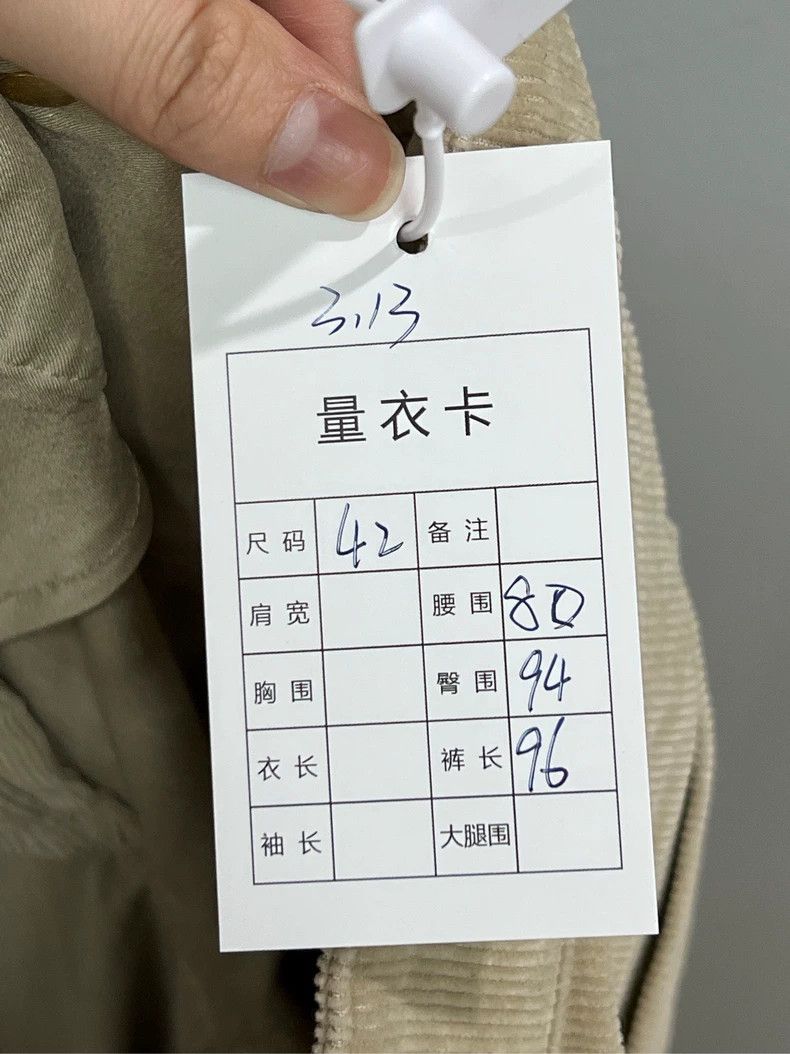 3.13
量衣卡
尺码 42 备注
肩宽 腰围 80
胸围 臀围 94
衣长 裤长 96
袖长 大腿围